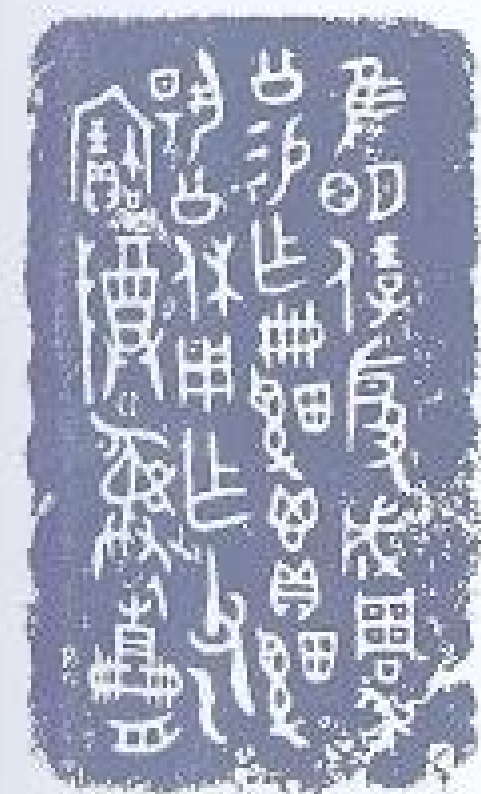 隹明保殷成周年
公易乍册䰧鬯貝䰧
揚公休用乍父乙
寶尊彝册舟